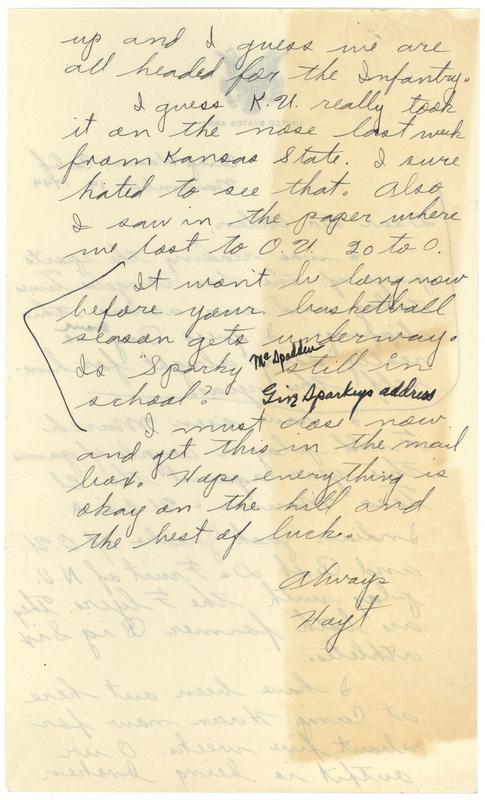 up and I guess we are
all headed for the Infantry.
I guess K.U. really took
it on the nose last week
from Kansas State. I sure
hated to see that. Also
I saw in the paper where
we lost to O.U. 20 to 0.
It won't be long now
before your basketball
season gets underway.
Is "Sparky Mc Spadden still in
school? Give Sparkeys address
I must close now
and get this in the mail
box. Hope everything is
okay on the hill and
the best of luck.
Always
Hoyt